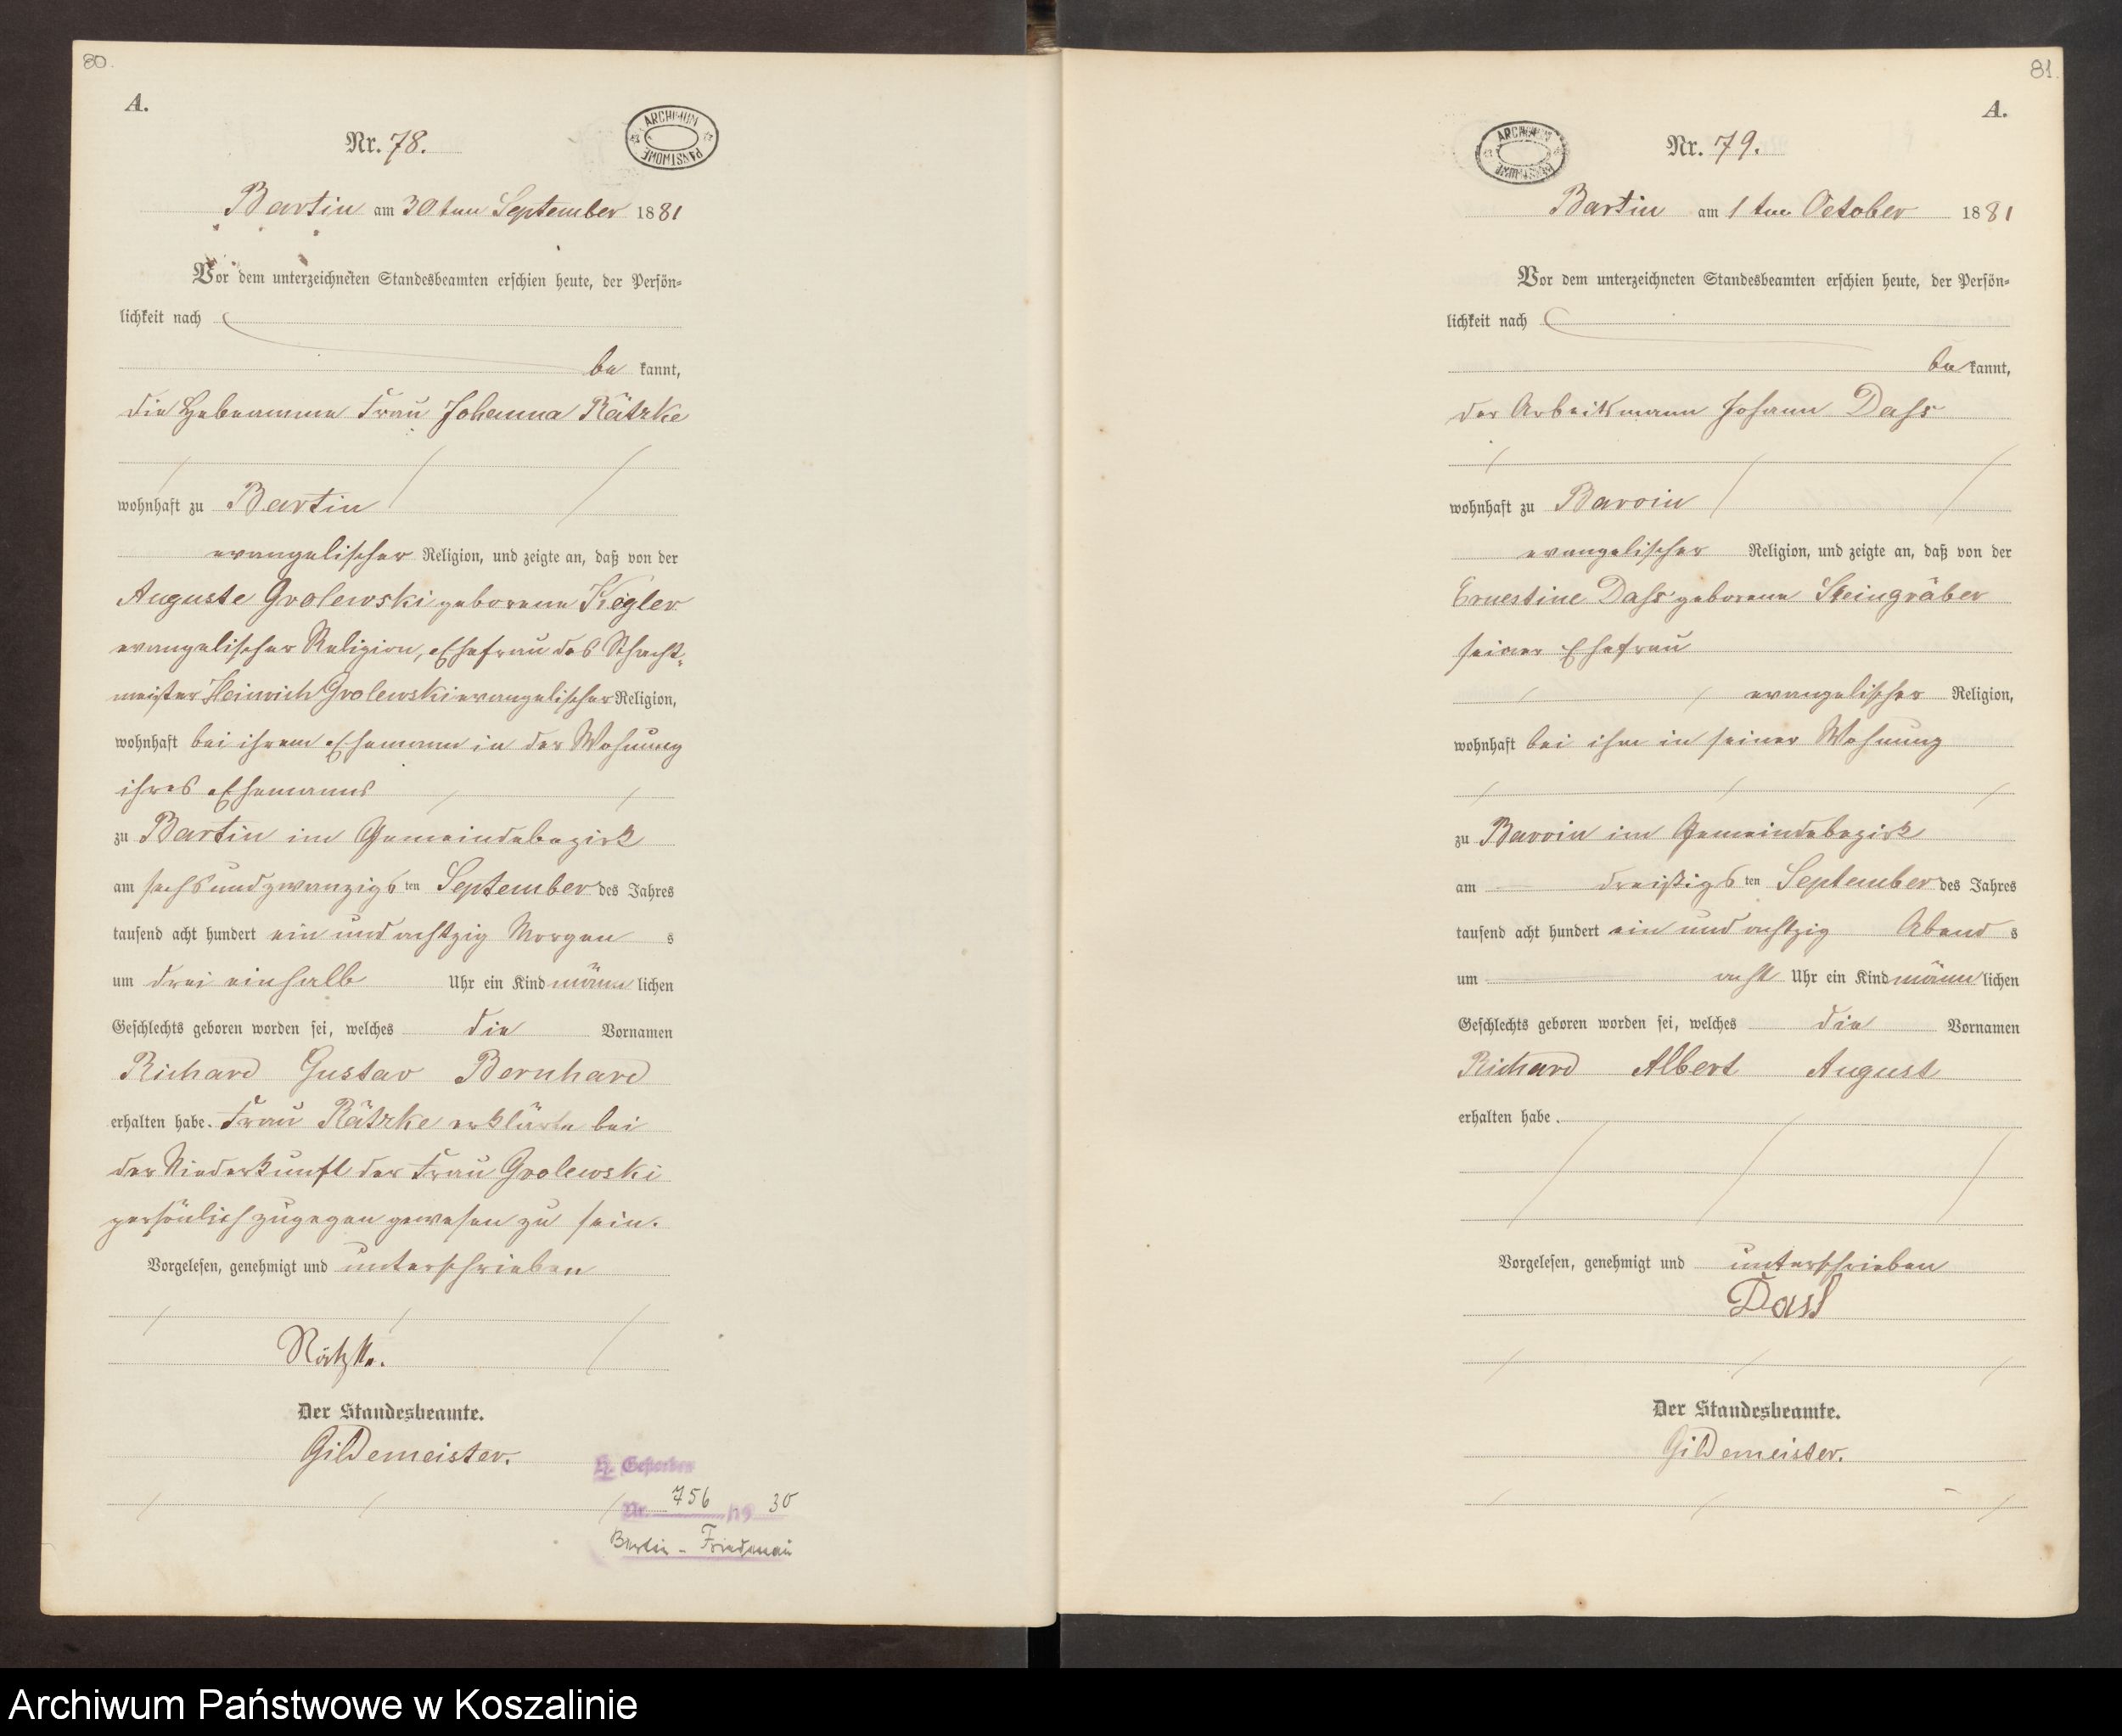 80.
A.
Nr. 78.
ARCHIWUM PAŃSTWOWE
Bartin am 30ten September 1881
Vor dem unterzeichneten Standesbeamten erschien heute, der Persön-
lichkeit nach
be kannt,
die Hebeamme Frau Johanna Rätzke
wohnhaft zu Bartin
evangelischer Religion, und zeigte an, daß von der
Auguste Grolewski geborene Kegler
evangelischer Religion, Ehefrau des Schacht-
meister Heinrich Grolewski evangelischer Religion,
wohnhaft bei ihrem Ehemann in der Wohnung
ihres Ehemanns
zu Bartin im Gemeindebezirk
am sechsundzwanzigsten September des Jahres
tausend acht hundert ein und achtzig Morgen s
um drei einhalb Uhr ein Kind männ lichen
Geschlechts geboren worden sei, welches die Vornamen
Richard Gustav Bernhard
erhalten habe. Frau Rätzke erklärte bei
der Niederkunft der Frau Grolewski
persönlich zugegen gewesen zu sein.
Vorgelesen, genehmigt und unterschrieben
Rätzke.
Der Standesbeamte.
Gildemeister.
Gestorben
Nr. 756 /19 30
Berlin - Friedenau
81.
A.
Nr. 79.
ARCHIWUM PAŃSTWOWE
Bartin am 1ten October 1881
Vor dem unterzeichneten Standesbeamten erschien heute, der Persön-
lichkeit nach
be kannt,
der Arbeitsmann Johann Dass
wohnhaft zu Barvin
evangelischer Religion, und zeigte an, daß von der
Ernestine Dass geborene Steingräber
seiner Ehefrau
evangelischer Religion,
wohnhaft bei ihm in seiner Wohnung
zu Barvin im Gemeindebezirk
am dreißigsten September des Jahres
tausend acht hundert ein und achtzig Abend s
um acht Uhr ein Kind männ lichen
Geschlechts geboren worden sei, welches die Vornamen
Richard Albert August
erhalten habe.
Vorgelesen, genehmigt und unterschrieben
Dass
Der Standesbeamte.
Gildemeister.
Archiwum Państwowe w Koszalinie